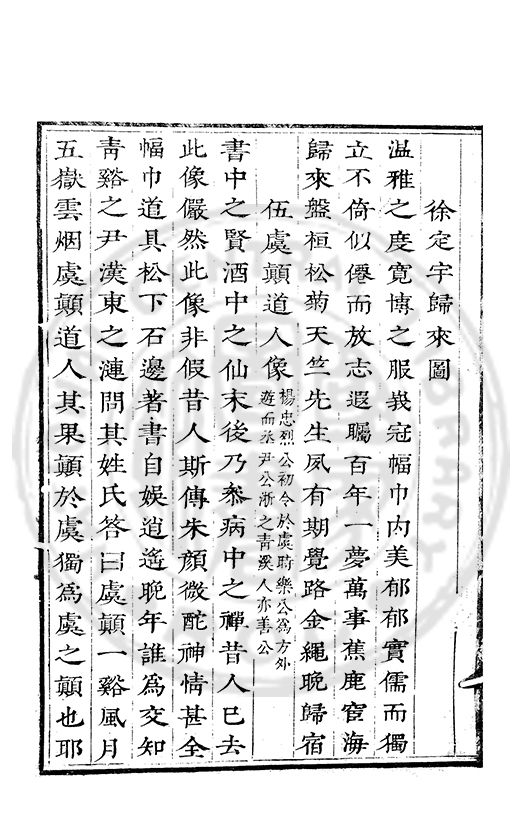 徐定宇歸來圖
溫雅之度寬博之服峩冠幅巾內美郁郁實儒而獨
立不倚似僊而放志遐矚百年一夢萬事蕉鹿宦海
歸來盤桓松菊天竺先生夙有期覺路金繩晚歸宿
伍虞顛道人像
楊忠烈公初令於虞時樂公為方外
遊而丞尹公浙之青溪人亦善公
書中之賢酒中之仙末後乃叅病中之禪昔人已去
此像儼然此像非假昔人斯傳朱顏微酡神情甚全
幅巾道具松下石邊著書自娛逍遙晚年誰為交知
靑谿之尹漢東之漣問其姓氏答曰虞顛一谿風月
五嶽雲烟虞顛道人其果顛於虞獨為虞之顛也耶